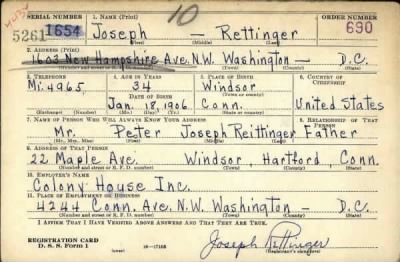 10
SERIAL NUMBER 1. NAME (Print) ORDER NUMBER
5261 1654 Joseph — Rettinger 690
(First) (Middle) (Last)
2. ADDRESS (Print)
1603 New Hampshire Ave. N.W. Washington — D.C.
(Number and street or R. F. D. number) (Town) (County) (State)
3. TELEPHONE 4. AGE IN YEARS 5. PLACE OF BIRTH 6. COUNTRY OF CITIZENSHIP
Mi. 4965 34 Windsor
DATE OF BIRTH (Town or county)
Jan. 18, 1906 Conn. United States
(Exchange) (Number) (Mo.) (Day) (Yr.) (State or country)
7. NAME OF PERSON WHO WILL ALWAYS KNOW YOUR ADDRESS 8. RELATIONSHIP OF THAT PERSON
Mr. Peter Joseph Reittinger Father
(Mr., Mrs., Miss) (First) (Middle) (Last)
9. ADDRESS OF THAT PERSON
22 Maple Ave. Windsor, Hartford, Conn.
(Number and street or R. F. D. number) (Town) (County) (State)
10. EMPLOYER'S NAME
Colony House Inc.
11. PLACE OF EMPLOYMENT OR BUSINESS
4244 Conn. Ave. N.W. Washington — D.C.
(Number and street or R. F. D. number) (Town) (County) (State)
I AFFIRM THAT I HAVE VERIFIED ABOVE ANSWERS AND THAT THEY ARE TRUE.
REGISTRATION CARD
D. S. S. Form 1 (over) 16—17105 Joseph Rettinger
(Registrant's signature)